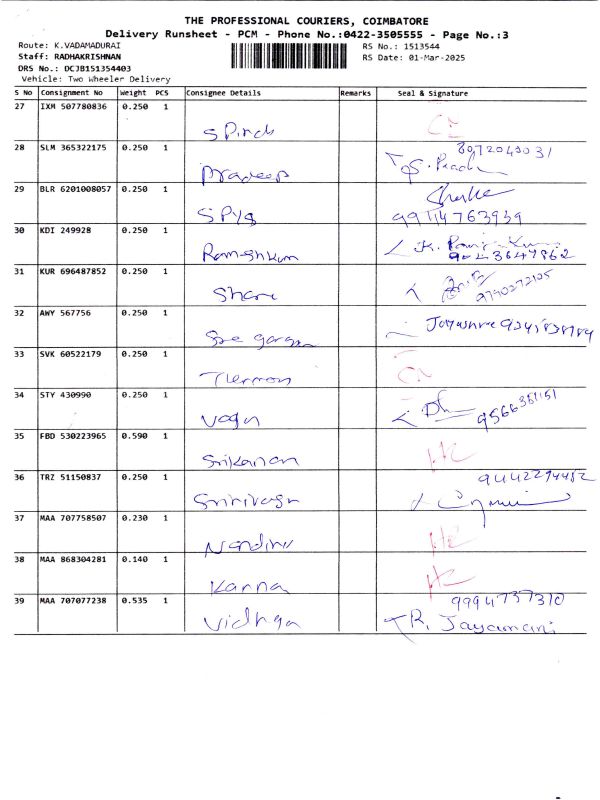 THE PROFESSIONAL COURIERS, COIMBATORE
Delivery Runsheet - PCM - Phone No.:0422-3505555 - Page No.:3
Route: K.VADAMADURAI
RS No.: 1513544
Staff: RADHAKRISHNAN
RS Date: 01-Mar-2025
DRS No.: DCJB151354403
Vehicle: Two Wheeler Delivery
S No Consignment No Weight PCS Consignee Details Remarks Seal & Signature
27 IXM 507780836 0.250 1
28 SLM 365322175 0.250 1 8072049031
Pradeep
29 BLR 6201008057 0.250 1
30 KDI 249928 0.250 1
Rameshkum 9043647862
31 KUR 696487852 0.250 1
9790272105
32 AWY 567756 0.250 1
Jayashree
33 SVK 60522179 0.250 1
34 STY 430990 0.250 1
35 FBD 530223965 0.590 1
36 TRZ 51150837 0.250 1 9442294452
37 MAA 707758507 0.230 1
38 MAA 868304281 0.140 1
Kanna
39 MAA 707077238 0.535 1 9994737310
Vidhya R. Jayamani